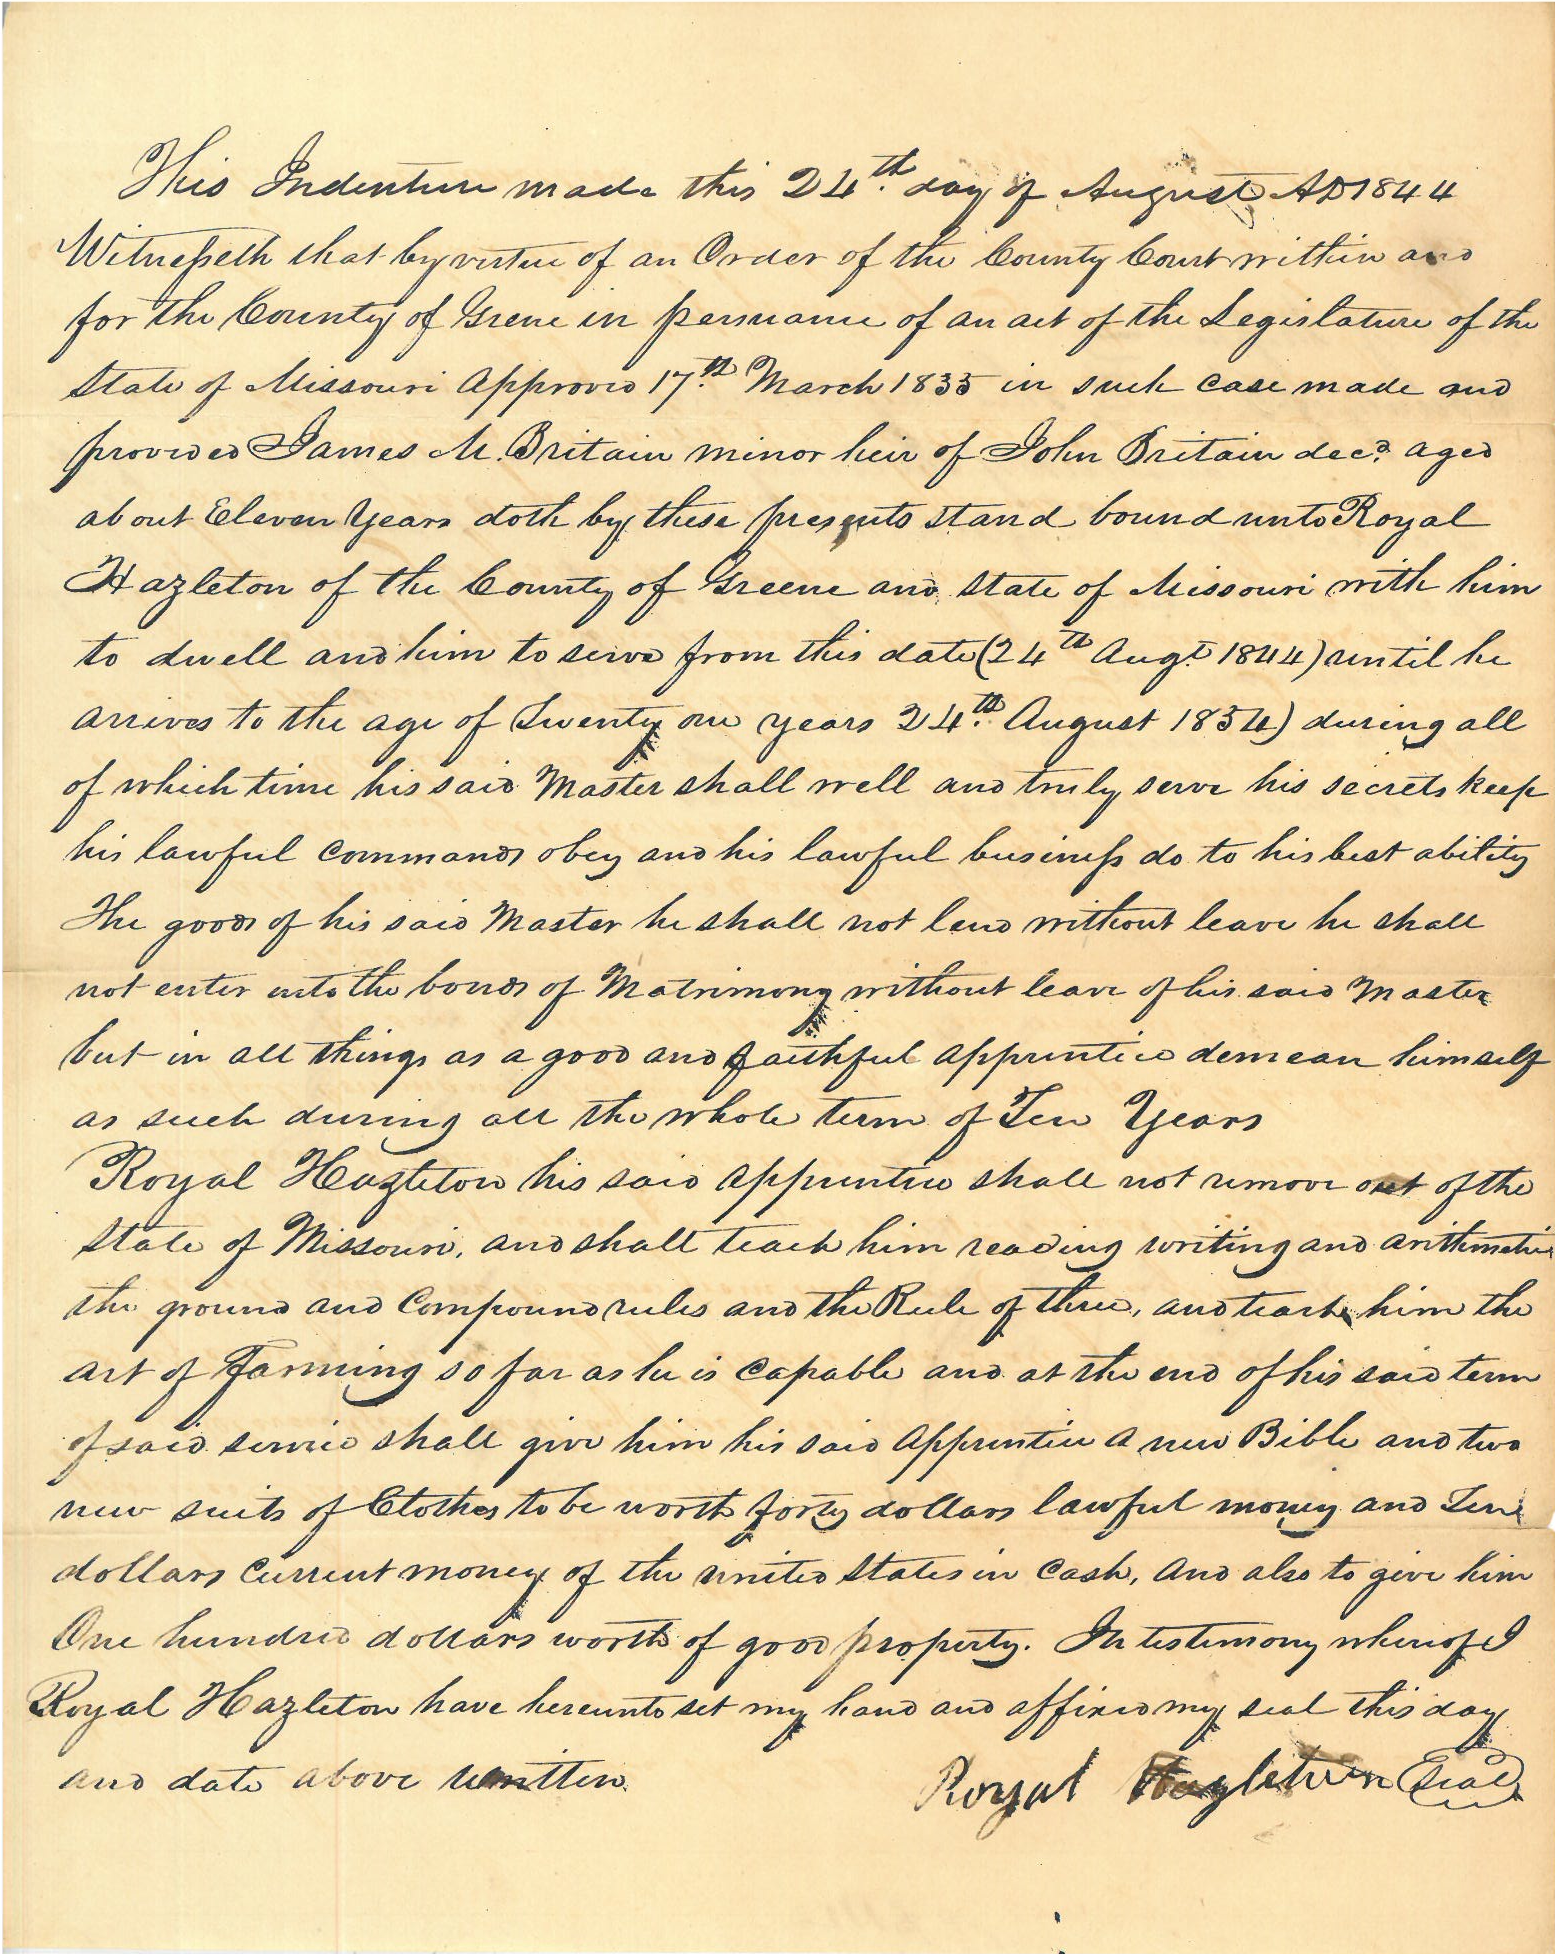 This Indenture made this 24th. day of August AD 1844
Witnesseth that by virtue of an Order of the County Court within and
for the County of Grene in persuance of an act of the Legislature of the
State of Missouri Approved 17th. March 1835 in such case made and
provided James M. Britain minor heir of John Britain decd. aged
about Eleven Years doth by these presents stand bound unto Royal
Hazleton of the County of Greene and State of Missouri with him
to dwell and him to serve from this date (24th Augt. 1844) until he
arrives to the age of Twenty one years 24th. August 1854) during all
of which time his said Master shall well and truly serve his secrets keep
his lawful commands obey and his lawful business do to his best ability
The goods of his said Master he shall not lend without leave he shall
not enter into the bonds of Matrimony without leave of his said Master
but in all things as a good and faithful apprentice demean himself
as such during all the whole term of Ten Years
Royal Hazleton his said apprentice shall not remove out of the
State of Missouri, and shall teach him reading writing and arithmetic
the ground and Compound rules and the Rule of three, and teach him the
art of Farming so far as he is capable and at the end of his said term
of said service shall give him his said Apprentice A new Bible and two
new suits of Clothes to be worth forty dollars lawful money and Ten
dollars Current money of the united States in Cash, And also to give him
One hundred dollars worth of good property. In testimony whereof I
Royal Hazleton have hereunto set my hand and affixed my seal this day
and date above written.
Royal Hazletwon Seal